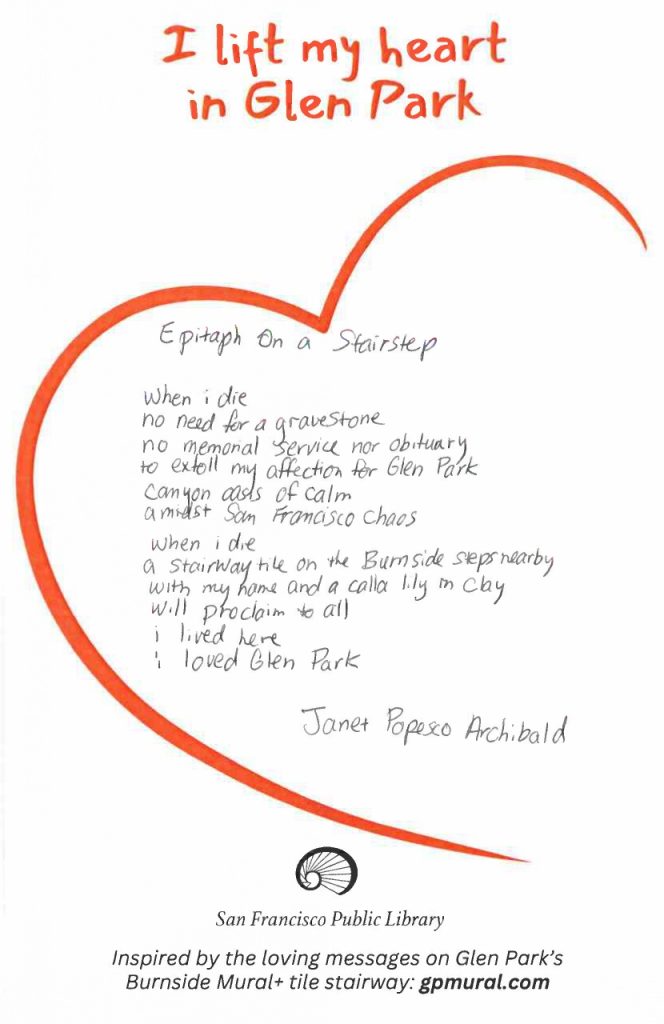 I lift my heart
in Glen Park
Epitaph On a Stairstep
when i die
no need for a gravestone
no memorial service nor obituary
to extoll my affection for Glen Park
canyon oasis of calm
amidst San Francisco Chaos
when i die
a stairway tile on the Burnside steps nearby
with my name and a calla lily in clay
will proclaim to all
i lived here
i loved Glen Park
Janet Popesco Archibald
San Francisco Public Library
Inspired by the loving messages on Glen Park's
Burnside Mural+ tile stairway: gpmural.com